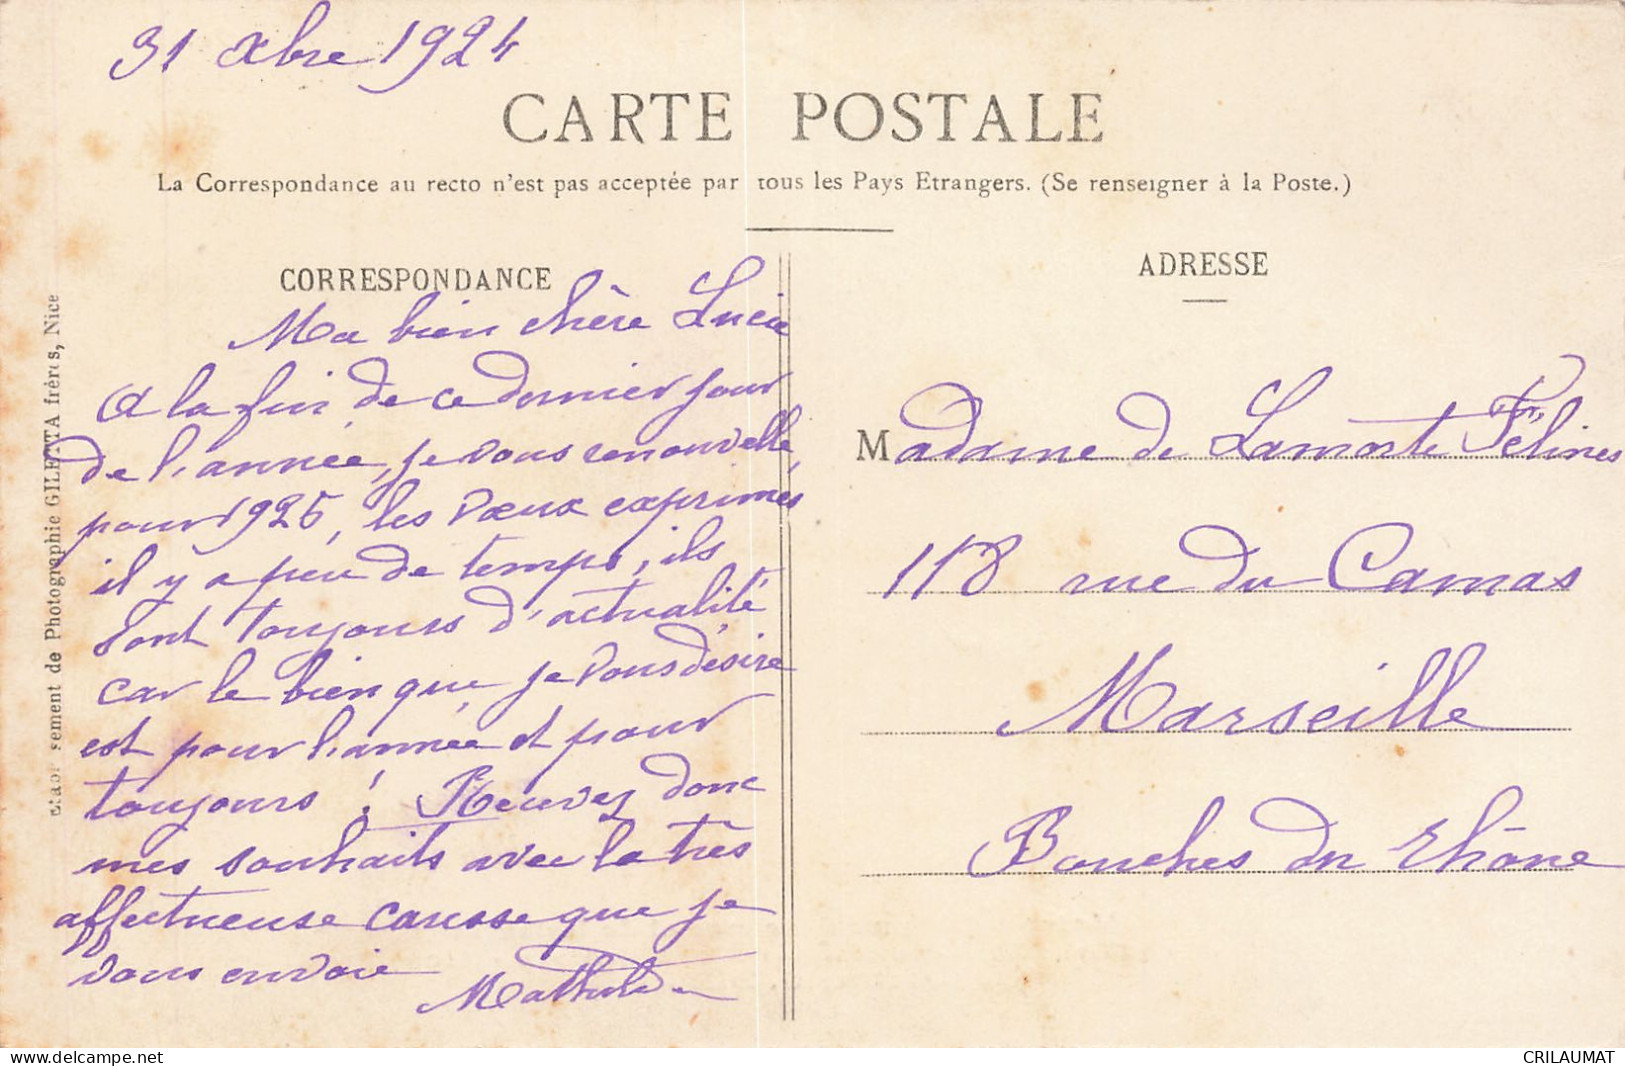 31 Xbre 1924
CARTE POSTALE
La Correspondance au recto n'est pas acceptée par tous les Pays Etrangers. (Se renseigner à la Poste.)
CORRESPONDANCE
Ma bien chère Lucie
A la fin de ce dernier jour
de l'année, je vous renouvelle,
pour 1925, les vœux exprimés
il y a peu de temps, ils
sont toujours d'actualité
car le bien que je vous désire
est pour l'année et pour
toujours ! Recevez donc
mes souhaits avec la très
affectueuse caresse que je
vous envoie
Mathilde
ADRESSE
Madame de Lamorte Félines
118 rue du Camas
Marseille
Bouches du Rhône
sement de Photographie GILETTA frères, Nice
delcampe.net
CRILAUMAT